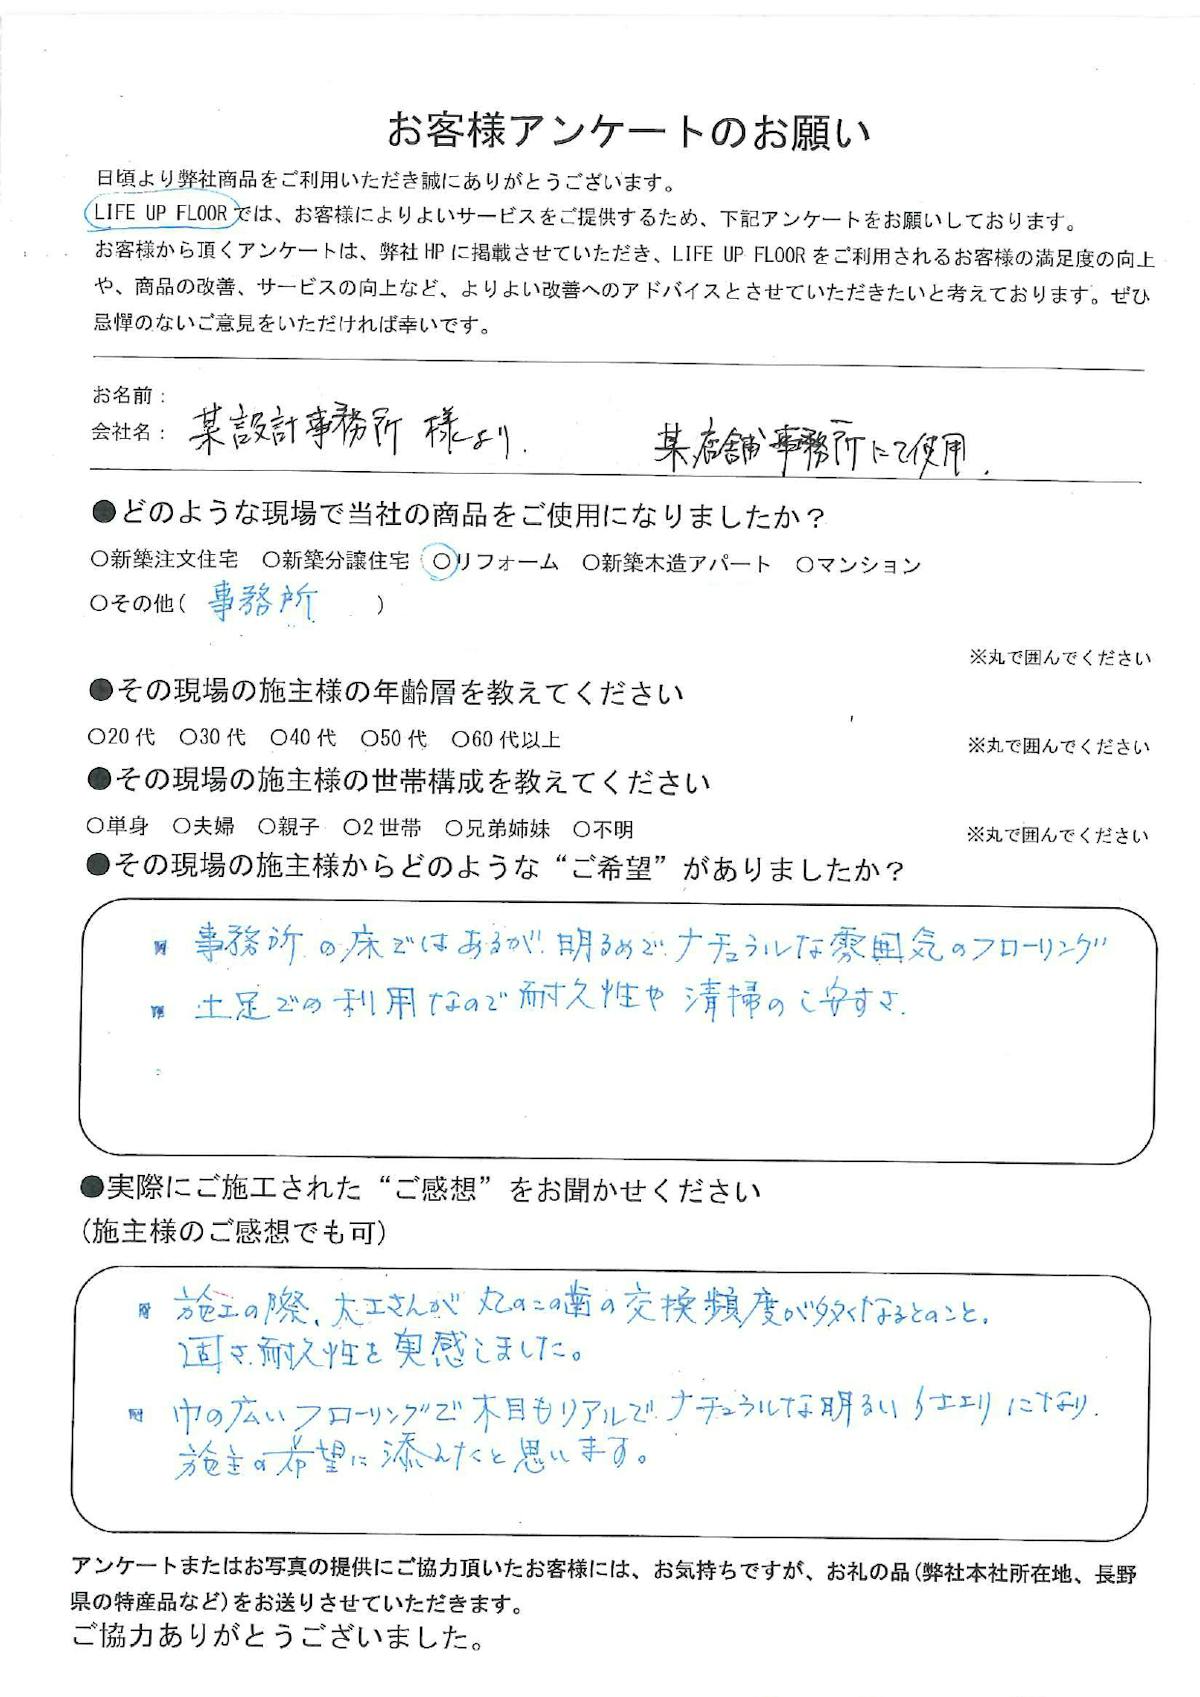 お客様アンケートのお願い
日頃より弊社商品をご利用いただき誠にありがとうございます。
LIFE UP FLOORでは、お客様によりよいサービスをご提供するため、下記アンケートをお願いしております。
お客様から頂くアンケートは、弊社HPに掲載させていただき、LIFE UP FLOORをご利用されるお客様の満足度の向上
や、商品の改善、サービスの向上など、よりよい改善へのアドバイスとさせていただきたいと考えております。ぜひ
忌憚のないご意見をいただければ幸いです。
お名前：
会社名： 某設計事務所 様より. 某店舗事務所にて使用.
●どのような現場で当社の商品をご使用になりましたか？
○新築注文住宅 ○新築分譲住宅 ○リフォーム ○新築木造アパート ○マンション
○その他( 事務所 )
※丸で囲んでください
●その現場の施主様の年齢層を教えてください
○20代 ○30代 ○40代 ○50代 ○60代以上 ※丸で囲んでください
●その現場の施主様の世帯構成を教えてください
○単身 ○夫婦 ○親子 ○2世帯 ○兄弟姉妹 ○不明 ※丸で囲んでください
●その現場の施主様からどのような“ご希望”がありましたか？
事務所の床ではあるが、明るめで、ナチュラルな雰囲気のフローリング
土足での利用なので耐久性や清掃のし安すさ.
●実際にご施工された“ご感想”をお聞かせください
(施主様のご感想でも可)
施工の際、大工さんが丸のこの歯の交換頻度が多くなるとのこと.
固さ、耐久性を実感しました。
巾の広いフローリングで木目もリアルで、ナチュラルな明るい仕上りになり.
施主の希望に添えたと思います。
アンケートまたはお写真の提供にご協力頂いたお客様には、お気持ちですが、お礼の品(弊社本社所在地、長野
県の特産品など)をお送りさせていただきます。
ご協力ありがとうございました。